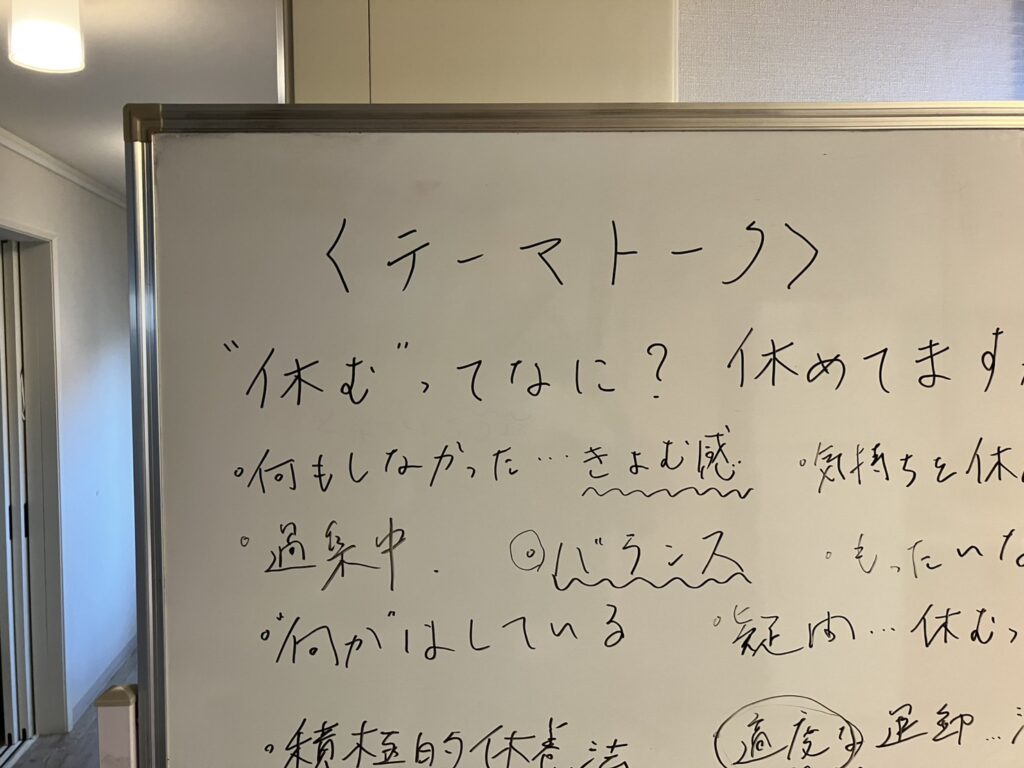 〈テーマトーク〉
"休む"ってなに？ 休めてます
・何もしなかった…きょむ感 ・気持ちを休
・過集中. ◎バランス ・もったいな
・"何か"はしている ・疑問…休むっ
・積極的休養法 適度な運動…